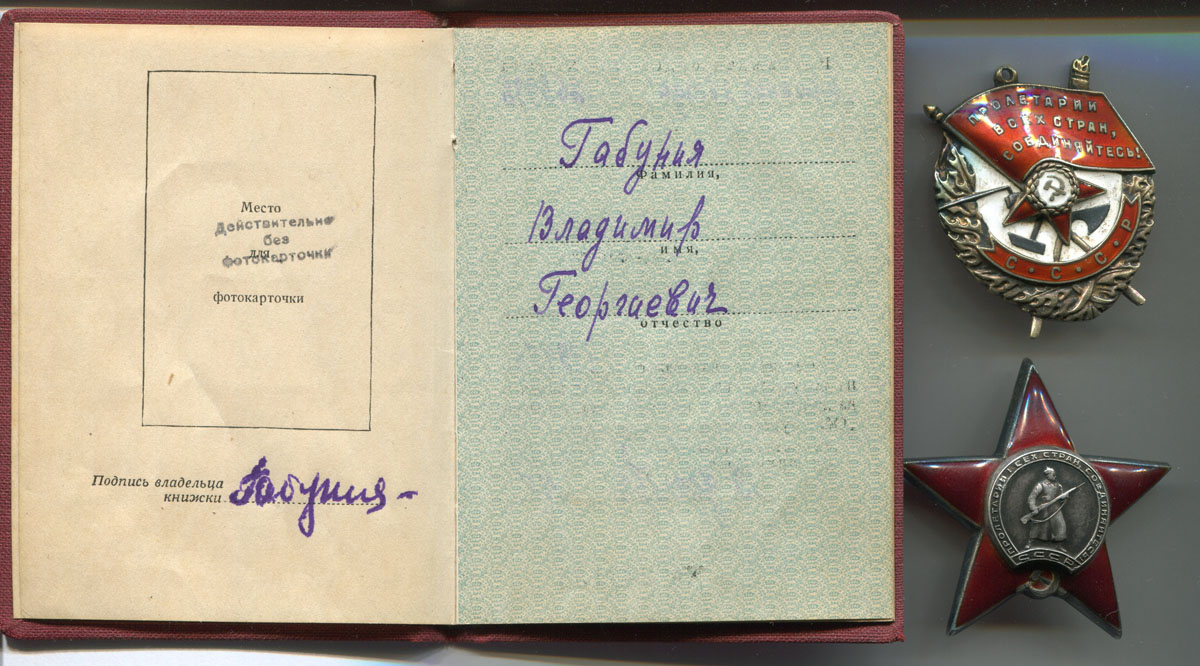 Место
Действительно
без
для
фотокарточки
фотокарточки
Подпись владельца
книжки Габуния
Габуния
фамилия,
Владимир
имя,
Георгиевич
отчество
ПРОЛЕТАРИИ
ВСЕХ СТРАН,
СОЕДИНЯЙТЕСЬ!
С·С·С·Р
ПРОЛЕТАРИИ ВСЕХ СТРАН, СОЕДИНЯЙТЕСЬ!
СССР